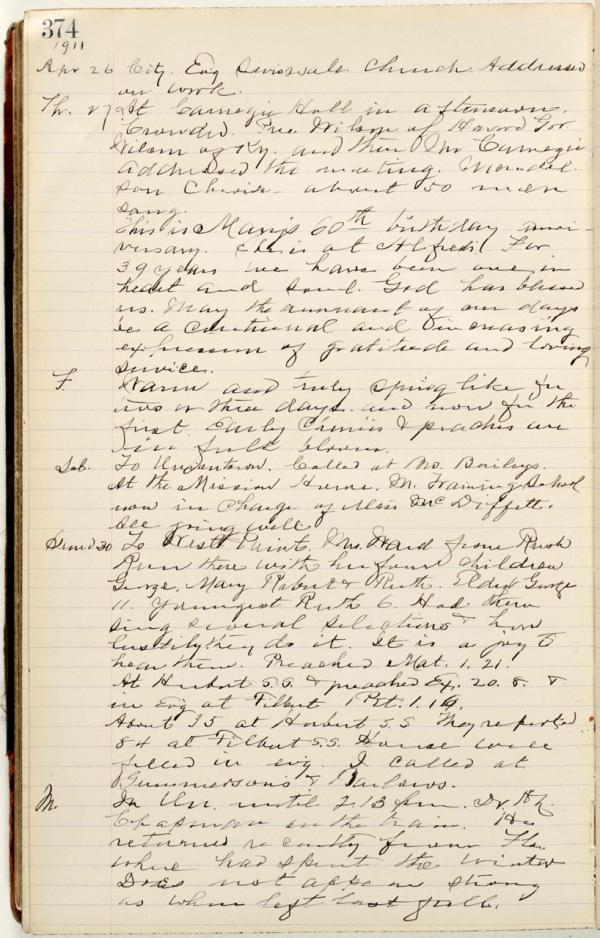 374
1911
Apr 26 City. Evg Swissvale Church. Addressed
on work.
Th. 27 At Carnegie Hall in afternoon.
Crowded. Pres. Wilson of Gov
Wilson of Ky. and then Mr Carnegie
addressed the meeting. Mendel-
son Choir - about 50 men
sang.
This is Mary's 60th birthday anni-
versary. She is at Alfreds. For
39 years we have been one in
heart and soul. God has blessed
us. May the remnant of our days
be a continual and increasing
expression of gratitude and loving
service.
F. Warm and truly spring like for
two or three days. and now for the
first. Early Cherries & peaches are
in full bloom.
Sab. To Uniontown. Called at Mr. Baileys.
At the Mission Home. M. Training School
now in charge of Miss Mc Diffett.
All going well.
30 To West Point. Mrs. Ward from Rush
Run there with her four children
George, Mary Robert & Ruth. Eldest George
11. Youngest Ruth 6. Had them
sing several selections & how
lustily they do it. It is a joy to
hear them. Preached Mat. 1.21.
At Herbert S.S. & preached Ex. 20.8. &
in Evg at Filbert 1 Pet. 1.19.
About 35 at Herbert S.S. They reported
84 at Filbert S.S. House well
filled in evg. I called at
Gummersons & Barlows.
M. In Un. until 2.13 pm. Dr.
Chapman on the train. Has
returned recently from Fla.
where had spent the winter
Does not appear strong
as when left last fall.